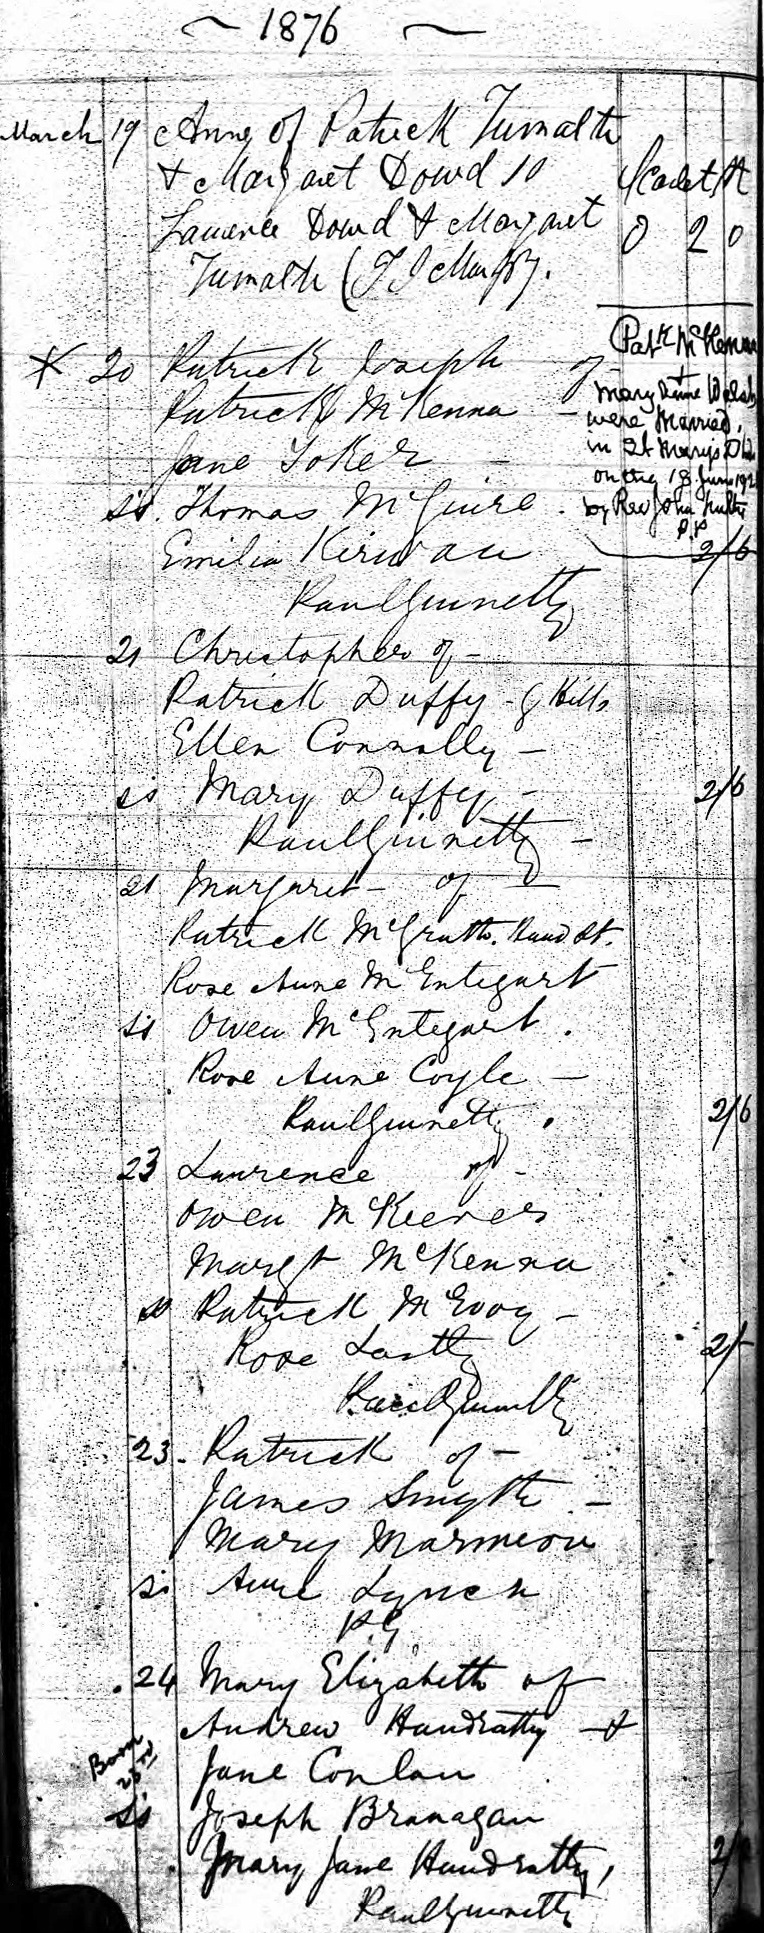 ~ 1876 ~
March 19 Anne of Patrick Tumalth
& Margaret Dowd so Scarlet St
Laurence Dowd & Margaret 0 2 0
Tumalth (J J Murphy.
X 20 Patrick Joseph of
Patrick McKenna –
Jane Toker –
ss. Thomas McGuire .
Emilia Kirwan
Paul Ginnetty
Patk McKenna
+
Mary Anne Walsh
were Married
in St Marys
on the 18 June
by Rev John Nulty
P.P
2/6
21 Christopher of –
Patrick Duffy – Hills
Ellen Connolly –
ss Mary Duffy – 2/6
Paul Ginnetty –
21 Margaret – of –
Patrick McGrath. Hand St.
Rose Anne McEntegart
ss Owen McEntegart .
Rose Anne Coyle –
Paul Ginnetty . 2/6
23 Laurence of –
Owen McKeever
Margt McKenna
ss Patrick McEvoy –
Rose 2/-
Paul Ginnetty
23. Patrick of –
James Smyth –
Mary Marmion
ss Anne Lynch
P.G
24 Mary Elizabeth of
Andrew Handratty – &
Born 23rd
Jane Conlan
ss Joseph Branagan
Mary Jane Handratty,
Paul Ginnetty